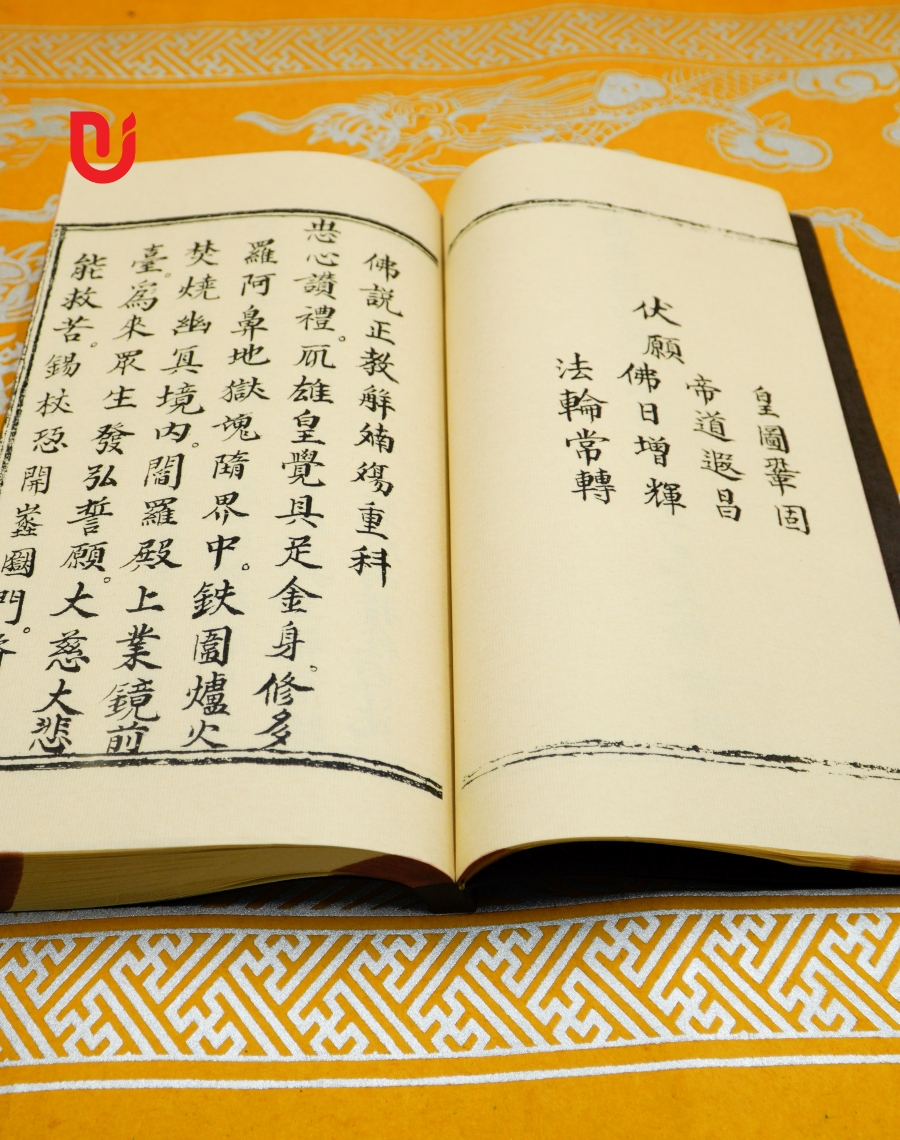 皇圖鞏固
帝道遐昌
伏願佛日增輝
法輪常轉
佛説正教觧婻殤重科
心讃禮。雄皇覺具足金身。修多
羅阿鼻地獄塊隋界中。鉄圖爐火
焚燒幽冥境内。閻羅殿上業鏡前
臺。為來眾生發弘誓願。大慈大悲
能救苦。錫杖恐開門。